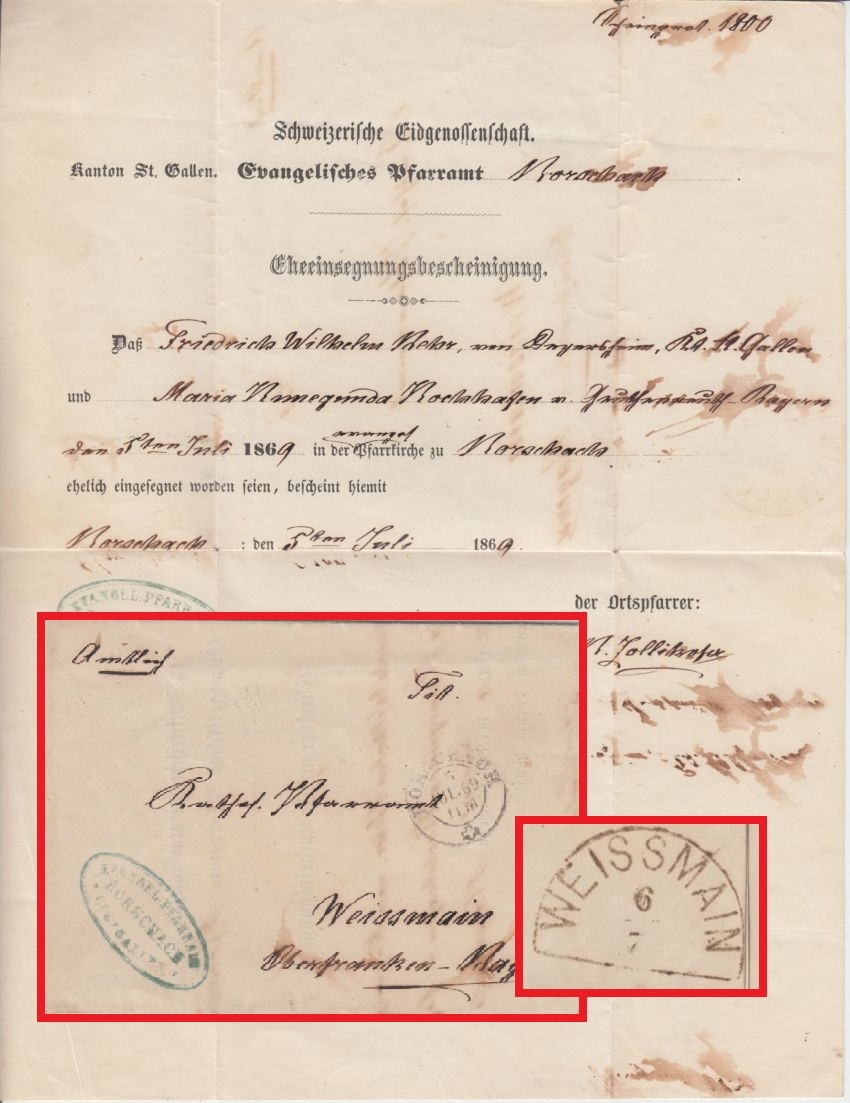 1800
Schweizerische Eidgenossenschaft.
Kanton St. Gallen. Evangelisches Pfarramt Rorschach
Eheeinsegnungsbescheinigung.
Daß Friedrich Wilhelm von Degersheim, Kt. St. Gallen
und Maria Kunegunda v. Bayern
den 5ten Juli 1869 in der evangel. Pfarrkirche zu Rorschach
ehelich eingesegnet worden seien, bescheint hiemit
Rorschach : den 5ten Juli 1869.
EVANGEL. PFARR
der Ortspfarrer:
Zollikofer
Amtlich
Tit.
Kathol. Pfarramt
RORSCHACH
69
EVANGEL. PFARRAMT
RORSCHACH
ST. GALLEN
Weissmain
Oberfranken - Bay
WEISSMAIN
6
7